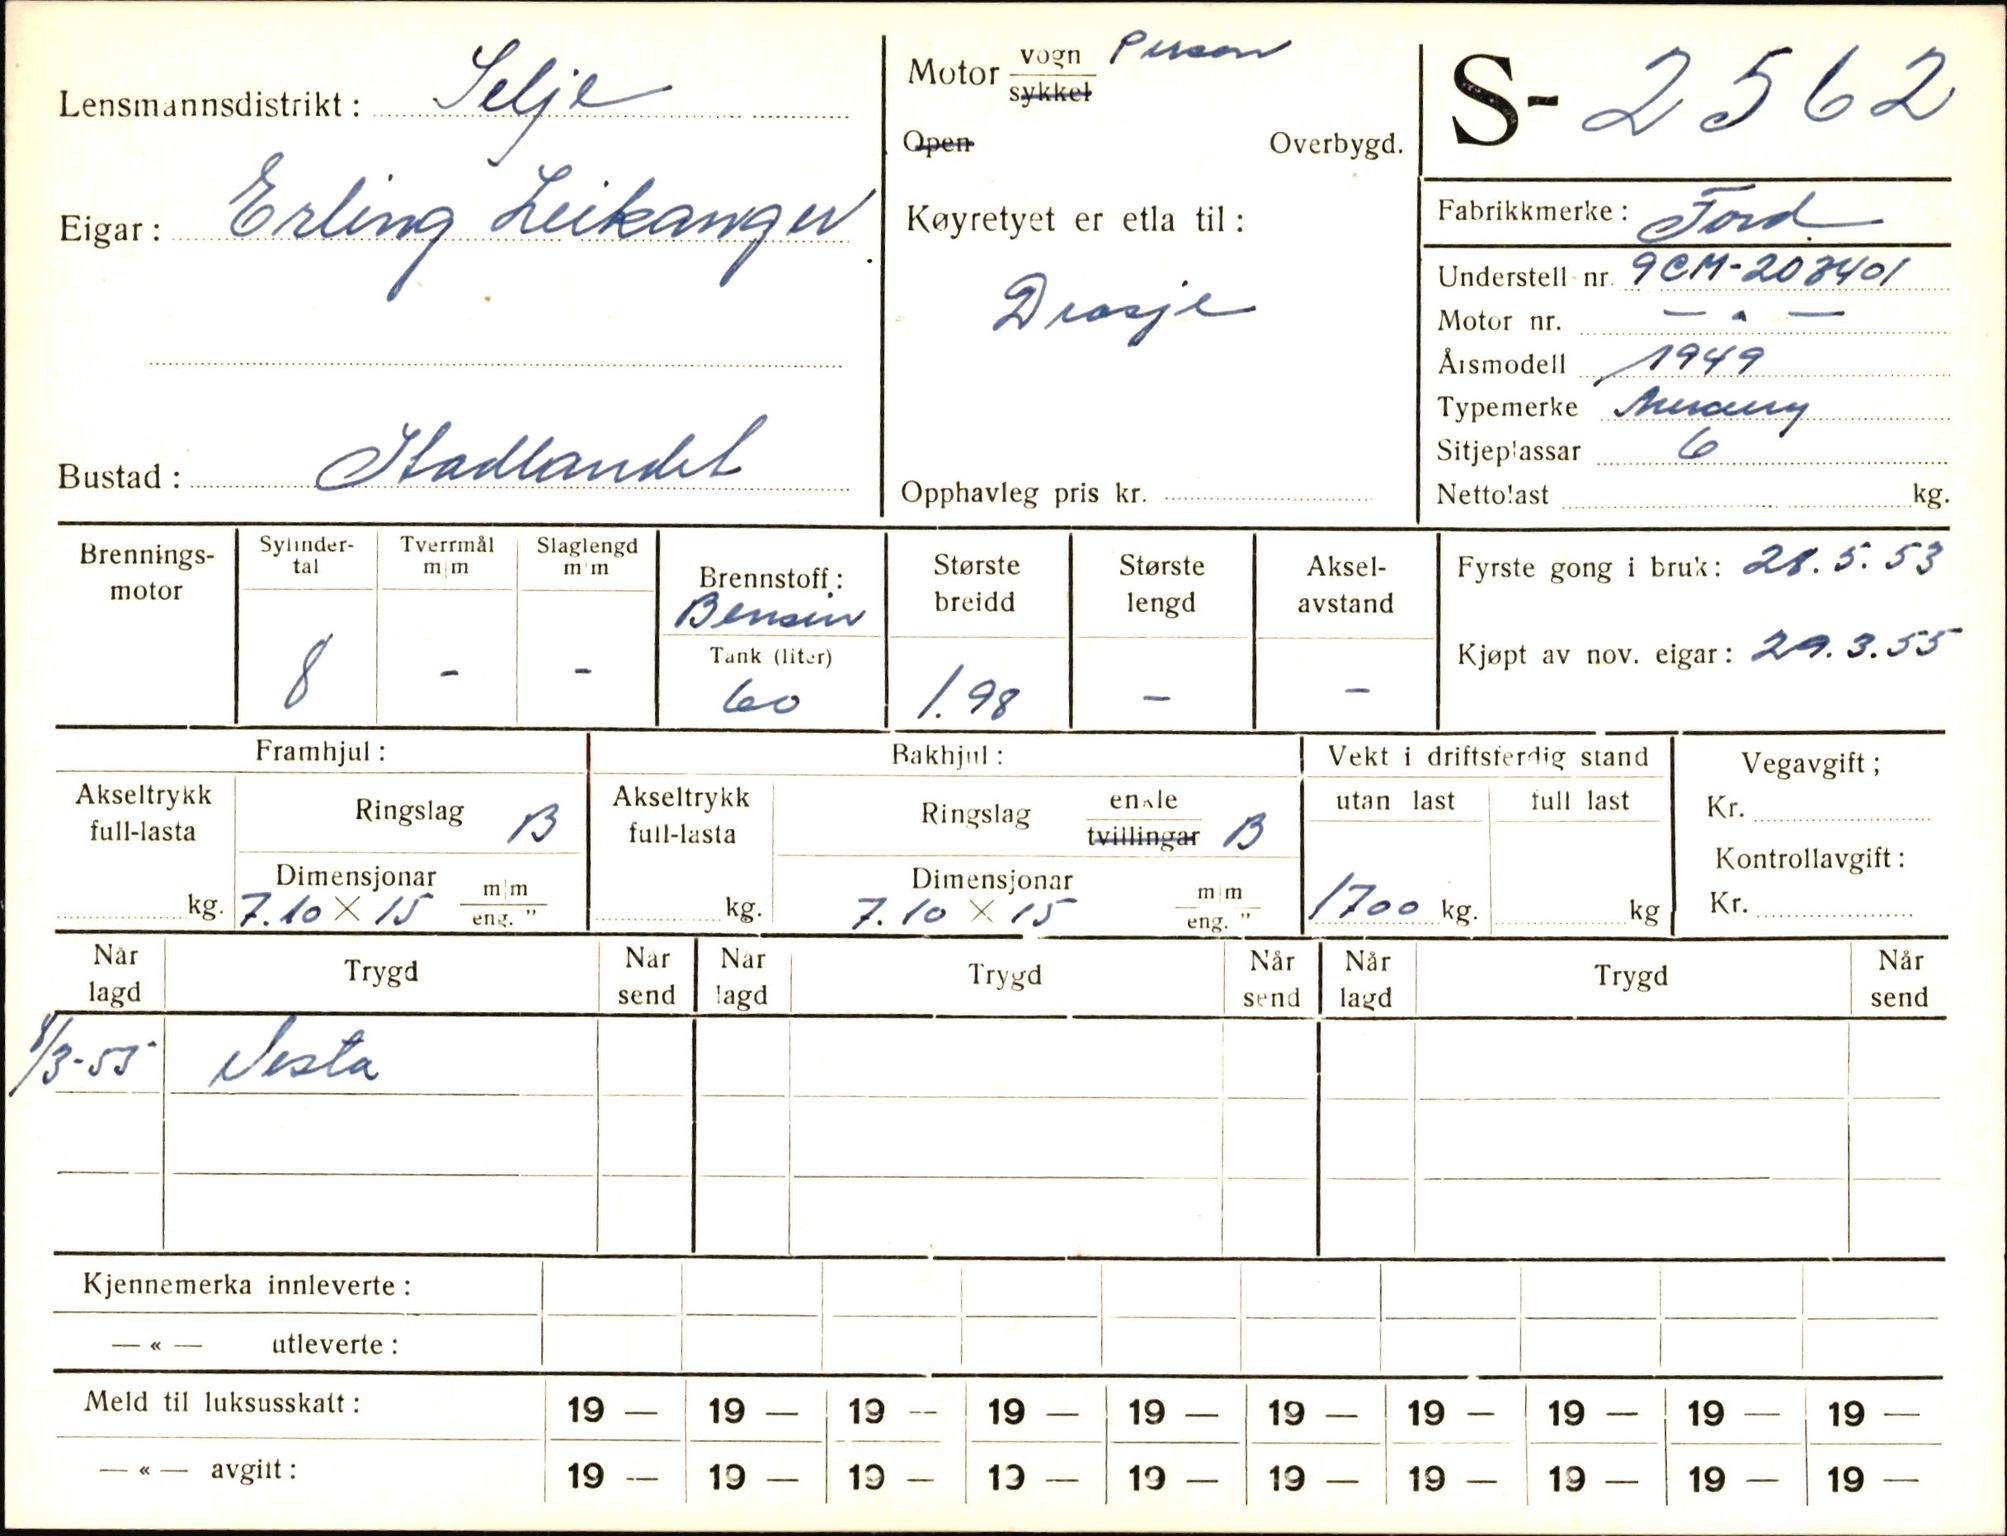 Lensmannsdistrikt: Selje
Eigar: Erling Leikanger
Bustad: Stadlandet
Motor vogn Person
sykkel
Open Overbygd.
Køyretyet er etla til:
Drosje
Opphavleg pris kr.
S- 2562
Fabrikkmerke: Ford
Understell nr. 9CM-203401
Motor nr. — " —
Årsmodell 1949
Typemerke Mercury
Sitjeplassar 6
Nettolast kg.
Brennings-
motor
Sylinder-
tal
8
Tverrmål
m|m
-
Slaglengd
m|m
-
Brennstoff:
Bensin
Tank (liter)
60
Største
breidd
1.98
Største
lengd
-
Aksel-
avstand
-
Fyrste gong i bruk: 28.5.53
Kjøpt av nov. eigar: 29.3.55
Framhjul:
Akseltrykk
full-lasta
kg.
Ringslag B
Dimensjonar m|m
7.10 × 15 eng. "
Bakhjul:
Akseltrykk
full-lasta
kg.
Ringslag enkle
tvillingar B
Dimensjonar m|m
7.10 × 15 eng. "
Vekt i driftsferdig stand
utan last full last
1700 kg. kg
Vegavgift;
Kr.
Kontrollavgift:
Kr.
Når
lagd
Trygd
Når
send
Når
lagd
Trygd
Når
send
Når
lagd
Trygd
Når
send
/3-55 Vesta
Kjennemerka innleverte:
— « — utleverte:
Meld til luksusskatt: 19 — 19 — 19 — 19 — 19 — 19 — 19 — 19 — 19 — 19 —
— « — avgitt: 19 — 19 — 19 — 19 — 19 — 19 — 19 — 19 — 19 — 19 —